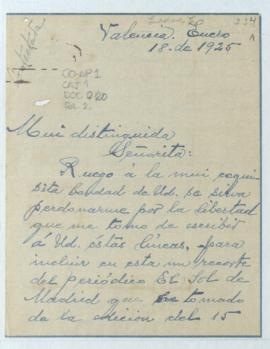 234
Valencia. Enero
18. de 1925
CO-AP1
CAJ 1
DOC 220
Mui distinguida
Señorita:
Ruego á la mui exqui
sita bondad de Ud. se sirva
perdonarme por la libertad
que me tomo de escribir
á Ud. estas lineas, para
incluir en esta un recorte
del periódico El Sol de
Madrid que he tomado
de la edicion del 15